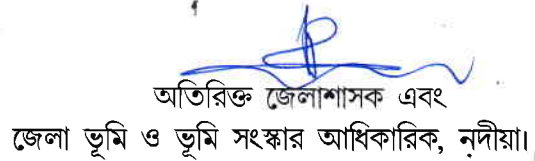 অতিরিক্ত জেলাশাসক এবং
জেলা ভূমি ও ভূমি সংস্কার আধিকারিক, নদীয়া।